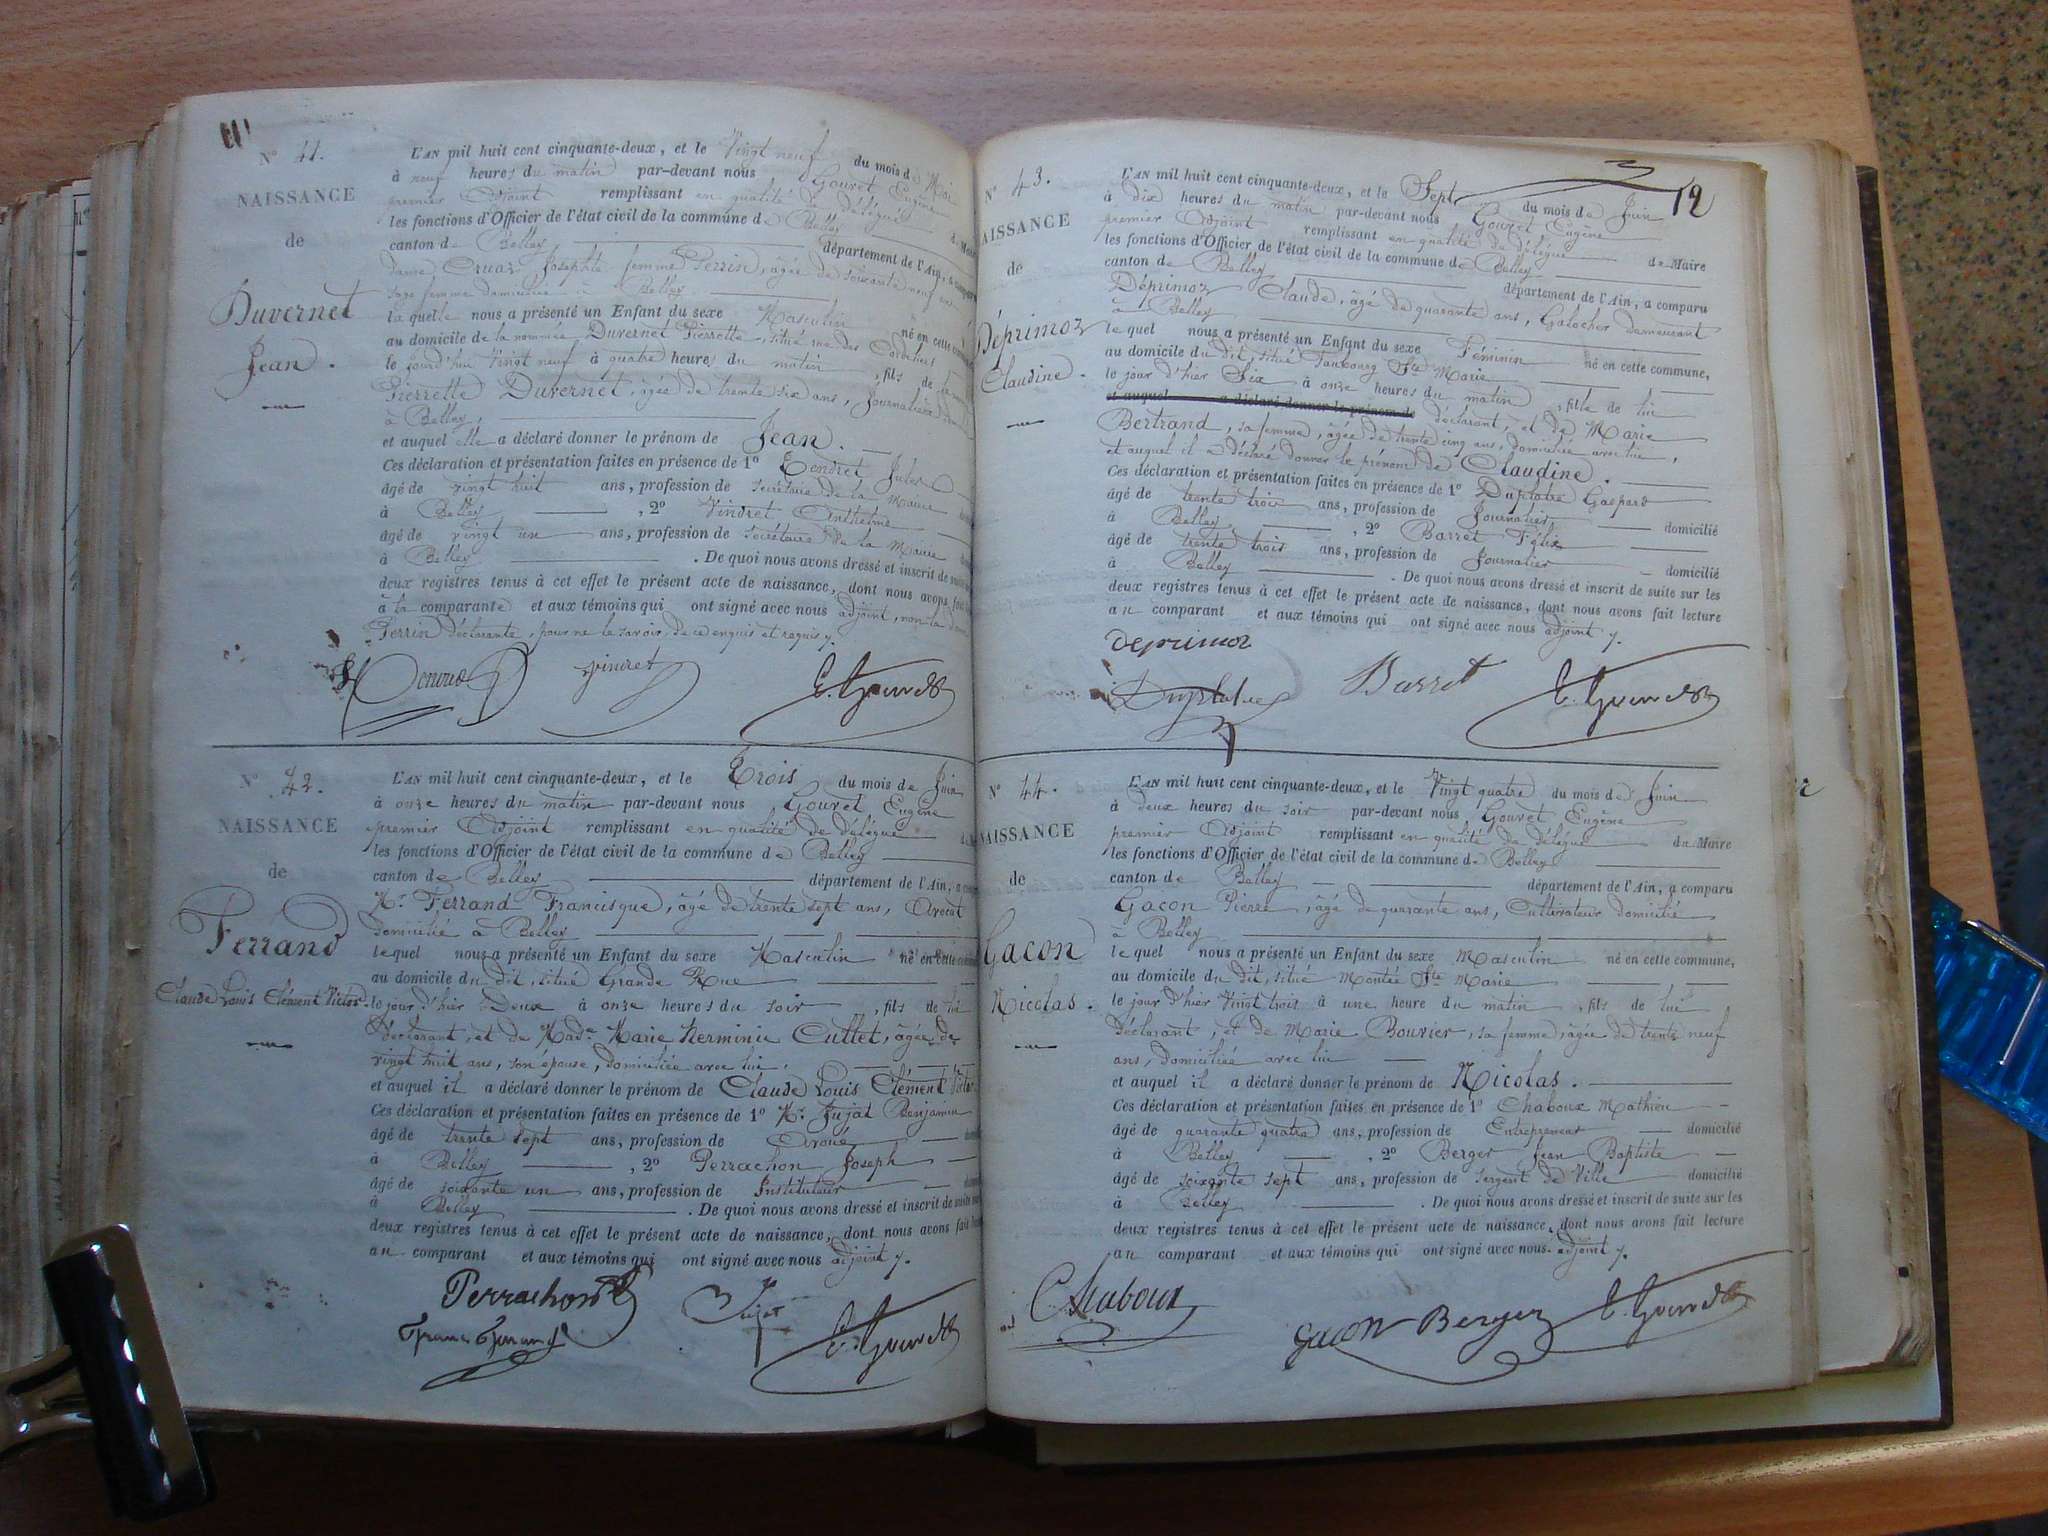 N° 41.
NAISSANCE
de
Duvernet
Jean.
L'AN mil huit cent cinquante-deux, et le Vingt neuf du mois de Mai
à neuf heures du matin par-devant nous Gouvet Eugène
premier Adjoint remplissant en qualité de délégué
les fonctions d'Officier de l'état civil de la commune de Belley
canton de Belley département de l'Ain, a
dame Cruaz Josephte femme Perrin, âgée de soixante neuf ans
sage femme domiciliée à Belley
laquelle nous a présenté un Enfant du sexe Masculin né en cette
au domicile de la nommée Duvernet Pierrette, situé rue des Cordeliers
le jourd'hui Vingt neuf à quatre heures du matin, fils de la
Pierrette Duvernet, âgée de trente six ans, Journalière
à Belley,
et auquel elle a déclaré donner le prénom de Jean.
Ces déclaration et présentation faites en présence de 1° Tendret Jules
âgé de vingt huit ans, profession de Secrétaire de la Mairie
à Belley, 2° Vindret Anthelme
âgé de vingt un ans, profession de Secrétaire de la Mairie
à Belley. De quoi nous avons dressé et inscrit de suite
deux registres tenus à cet effet le présent acte de naissance, dont nous avons fait
à la comparante et aux témoins qui ont signé avec nous adjoint, non la dame
Perrin déclarante, pour ne le savoir, de ce enquis et requis.
N° 42.
NAISSANCE
de
Ferrand
Claude Louis Clément Victor.
L'AN mil huit cent cinquante-deux, et le Trois du mois de Juin
à onze heures du matin par-devant nous Gouvet Eugène
premier Adjoint remplissant en qualité de délégué
les fonctions d'Officier de l'état civil de la commune de Belley
canton de Belley département de l'Ain, a
Mr. Ferrand Francisque, âgé de trente sept ans, Avocat
domicilié à Belley
lequel nous a présenté un Enfant du sexe Masculin né en cette
au domicile du dit, situé Grande Rue
le jour d'hier Deux à onze heures du soir, fils de lui
déclarant, et de Made. Marie Herminie Cuttet, âgée de
vingt huit ans, son épouse, domiciliée avec lui.
et auquel il a déclaré donner le prénom de Claude Louis Clément Victor
Ces déclaration et présentation faites en présence de 1° Mr. Jujat Benjamin
âgé de trente sept ans, profession de Avoué
à Belley, 2° Perrachon Joseph
âgé de soixante un ans, profession de Instituteur
à Belley. De quoi nous avons dressé et inscrit de suite
deux registres tenus à cet effet le présent acte de naissance, dont nous avons fait
au comparant et aux témoins qui ont signé avec nous adjoint.
Perrachon
12
N° 43.
NAISSANCE
de
Déprimoz
Claudine.
L'AN mil huit cent cinquante-deux, et le Sept du mois de Juin
à dix heures du matin par-devant nous Gouvet Eugène
premier Adjoint remplissant en qualité de délégué de Maire
les fonctions d'Officier de l'état civil de la commune de Belley
canton de Belley département de l'Ain, a comparu
Déprimoz Claude, âgé de quarante ans, Galocher demeurant
à Belley
lequel nous a présenté un Enfant du sexe Féminin né en cette commune,
au domicile du dit, situé Faubourg Ste Marie
le jour d'hier Six à onze heures du matin, fille de lui
et auquel a déclaré donner le prénom de déclarant, et de Marie
Bertrand, sa femme, âgée de trente cinq ans, domiciliée avec lui,
et auquel il a déclaré donner le prénom de Claudine.
Ces déclaration et présentation faites en présence de 1° Duplatre Gaspard
âgé de trente trois ans, profession de Journalier domicilié
à Belley, 2° Barret Félix
âgé de trente trois ans, profession de Journalier domicilié
à Belley. De quoi nous avons dressé et inscrit de suite sur les
deux registres tenus à cet effet le présent acte de naissance, dont nous avons fait lecture
au comparant et aux témoins qui ont signé avec nous adjoint.
deprimoz
Duplatre Barret
N° 44.
NAISSANCE
de
Gacon
Nicolas.
L'AN mil huit cent cinquante-deux, et le Vingt quatre du mois de Juin
à deux heures du soir par-devant nous Gouvet Eugène
premier Adjoint remplissant en qualité de délégué du Maire
les fonctions d'Officier de l'état civil de la commune de Belley
canton de Belley département de l'Ain, a comparu
Gacon Pierre, âgé de quarante ans, Cultivateur domicilié
à Belley
lequel nous a présenté un Enfant du sexe Masculin né en cette commune,
au domicile du dit, situé Montée Ste Marie
le jour d'hier Vingt trois à une heure du matin, fils de lui
déclarant, et de Marie Bouvier, sa femme, âgée de trente neuf
ans, domiciliée avec lui
et auquel il a déclaré donner le prénom de Nicolas.
Ces déclaration et présentation faites en présence de 1° Chaboux Mathieu
âgé de quarante quatre ans, profession de Entrepreneur domicilié
à Belley, 2° Berger Jean Baptiste
âgé de soixante sept ans, profession de Sergent de Ville domicilié
à Belley. De quoi nous avons dressé et inscrit de suite sur les
deux registres tenus à cet effet le présent acte de naissance, dont nous avons fait lecture
au comparant et aux témoins qui ont signé avec nous adjoint.
Chaboux
gacon Berger